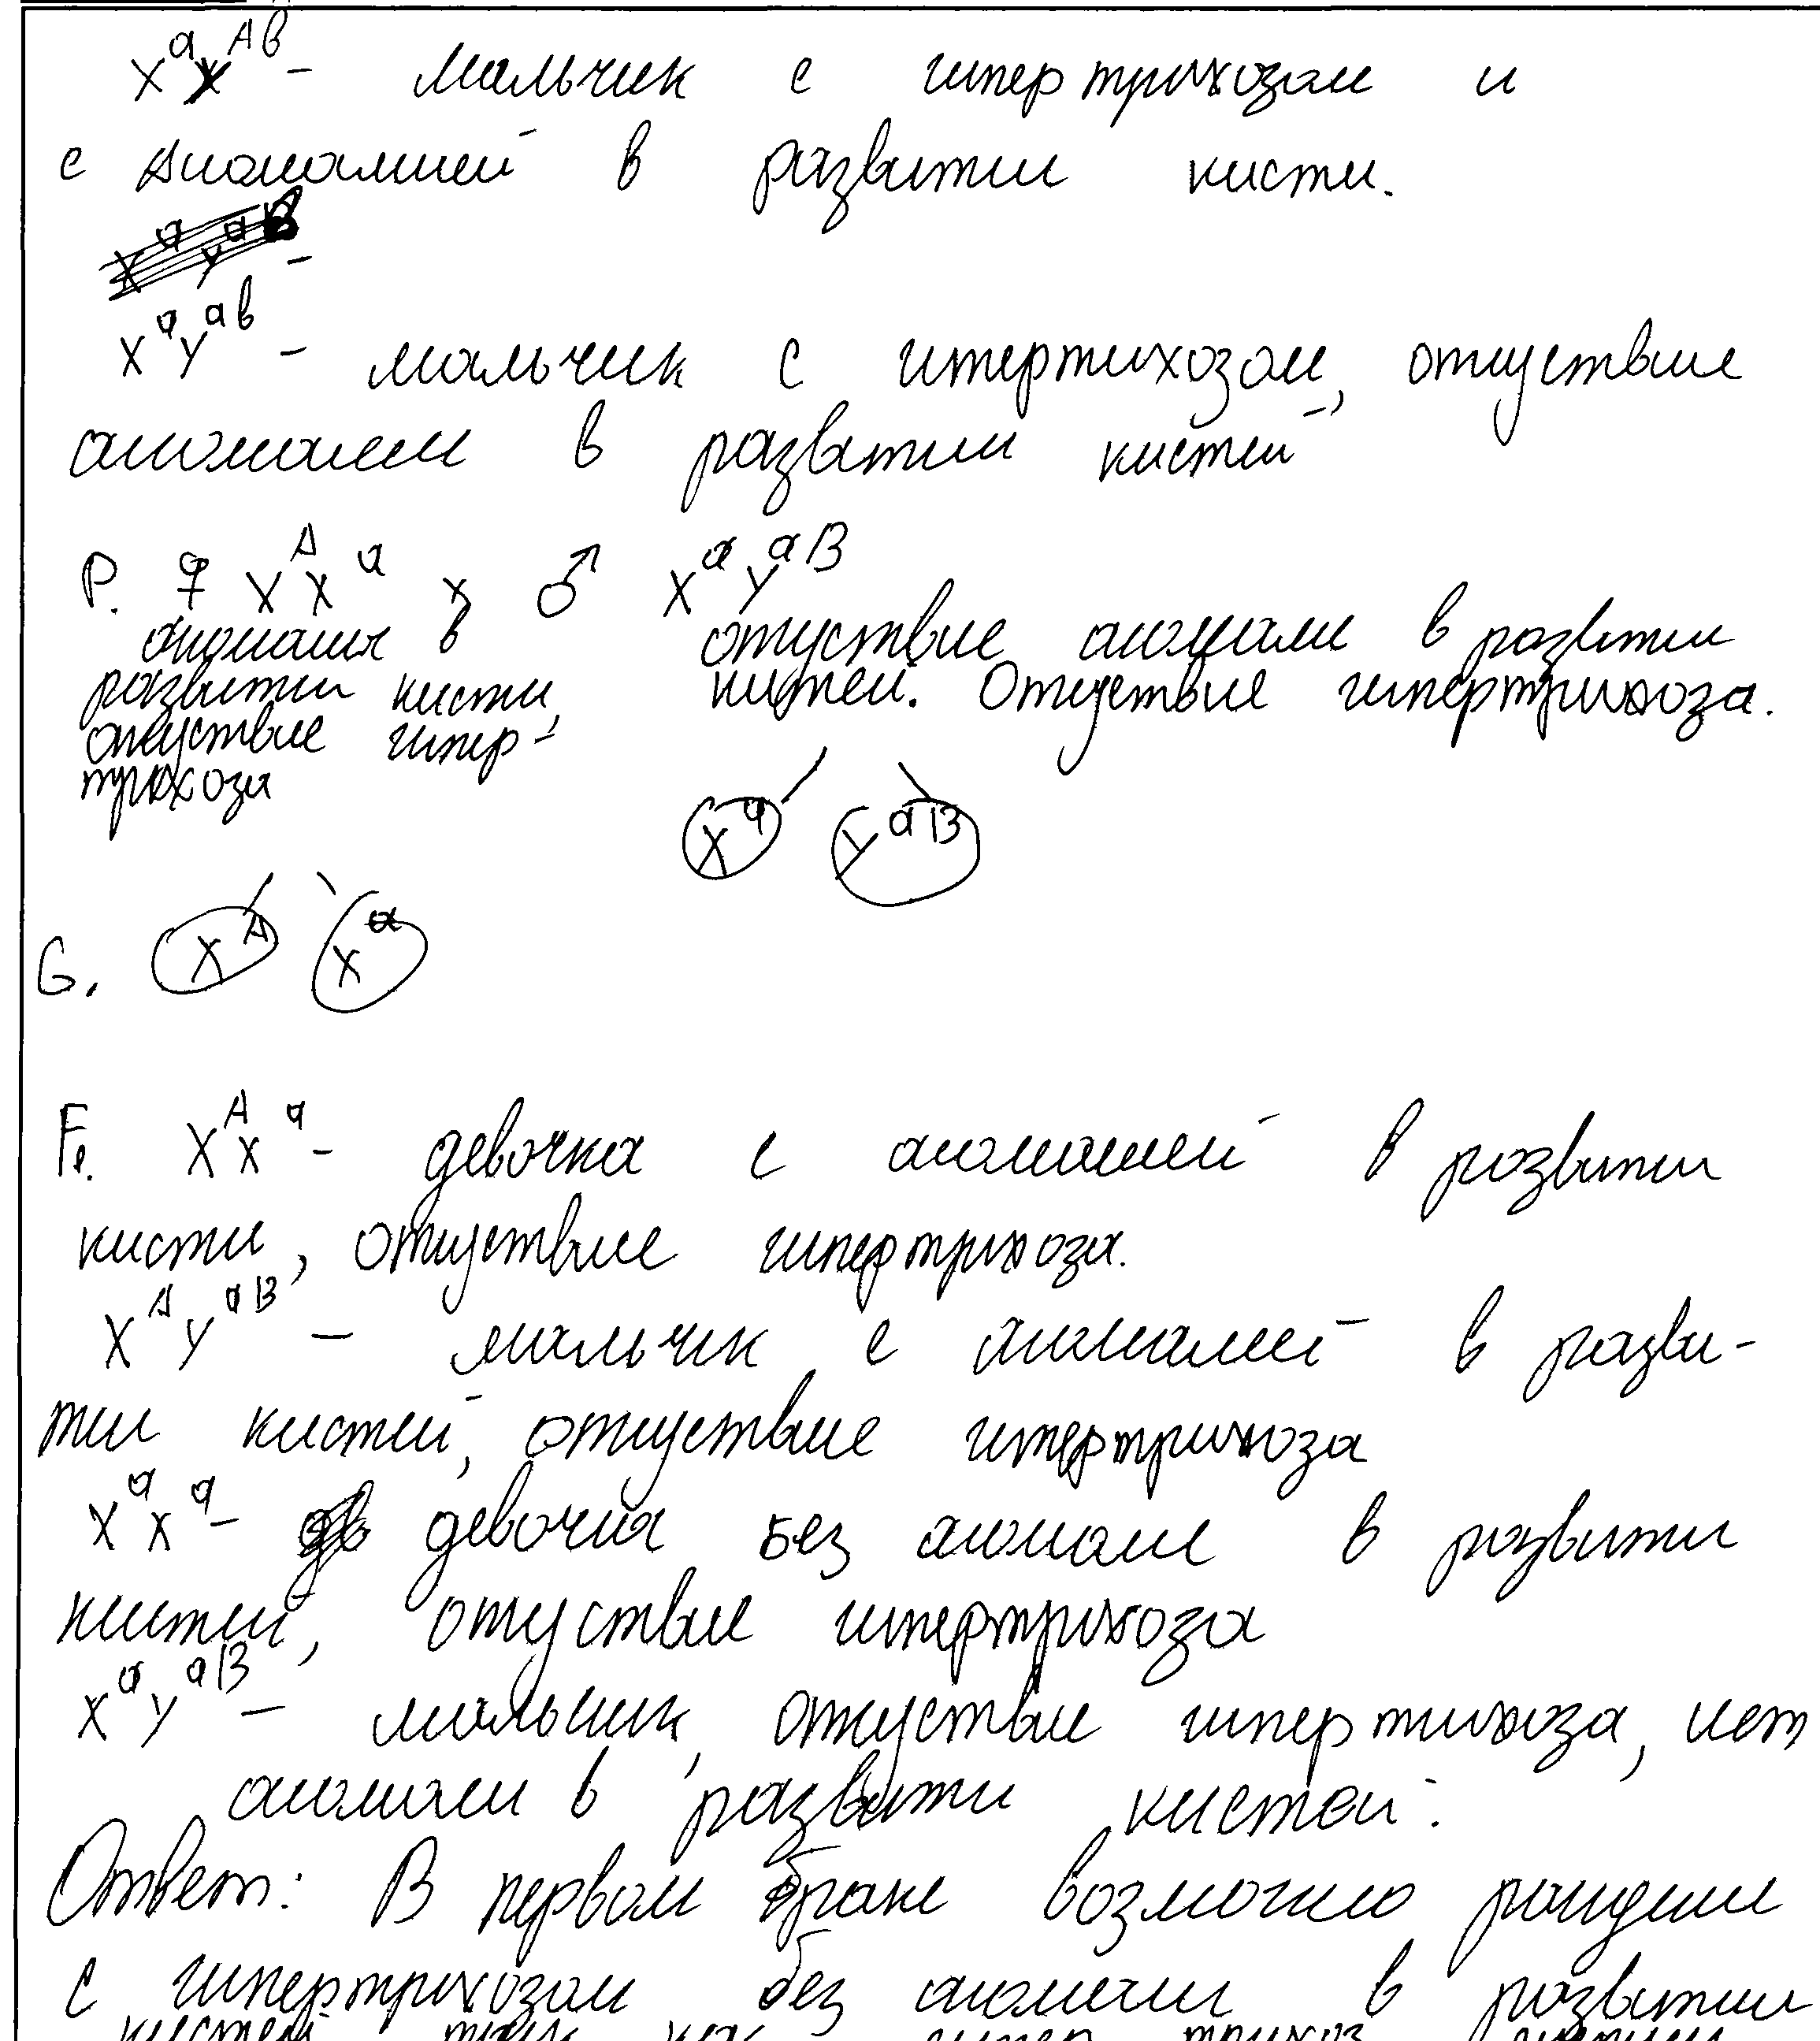 XᵃYᴬᵇ – мальчик с гипертрихозом и
с аномалией в развитии кисти.
XᵃYᵃᵇ – мальчик с гипертихозом, отцуствие
аномалеи в развитии кистей
P. ♀ XᴬXᵃ x ♂ XᵃYᵃᴮ
аномалия в отцуствие аномали в развити
развитии кисти, кистей. Отцуствие гипертрихоза.
отцуствие гипер-
трихоза
Xᵃ YᵃB
G. Xᴬ Xᵃ
F₁. XᴬXᵃ – девочка с аномалией в развити
кисти, отцуствие гипертрихоза.
XᴬYᵃᴮ – мальчик с аномалей в разви-
тии кистей, отцуствие гипертрихоза
XᵃXᵃ – девочка без аномали в развити
кистей, отцуствие гипертрихоза
XᵃYᵃᴮ – мальчик, отцуствие гипертихоза, нет
аномали в развити кистей.
Ответ: В первом браке возможно рождение
с гипертрихозом без аномалии в развитии
кистей так как гипер трихоз